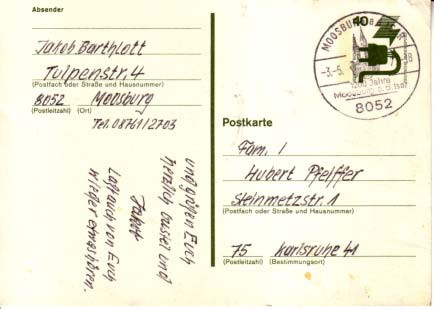 Absender
Jakob Barthlott
Tulpenstr. 4
(Postfach oder Straße und Hausnummer)
8052 Moosburg
(Postleitzahl) (Ort)
Tel. 08761/2703
und grüßen Euch
herzlich
und
Jakob
Laßt auch von Euch
wieder etwas hören.
40
MOOSBURG
-3.-5.
1200 Jahre
Moosburg a.d. Isar
8052
Postkarte
Fam. /
Hubert Pfeiffer
Steinmetzstr. 1
(Postfach oder Straße und Hausnummer)
75 Karlsruhe 41
(Postleitzahl) (Bestimmungsort)